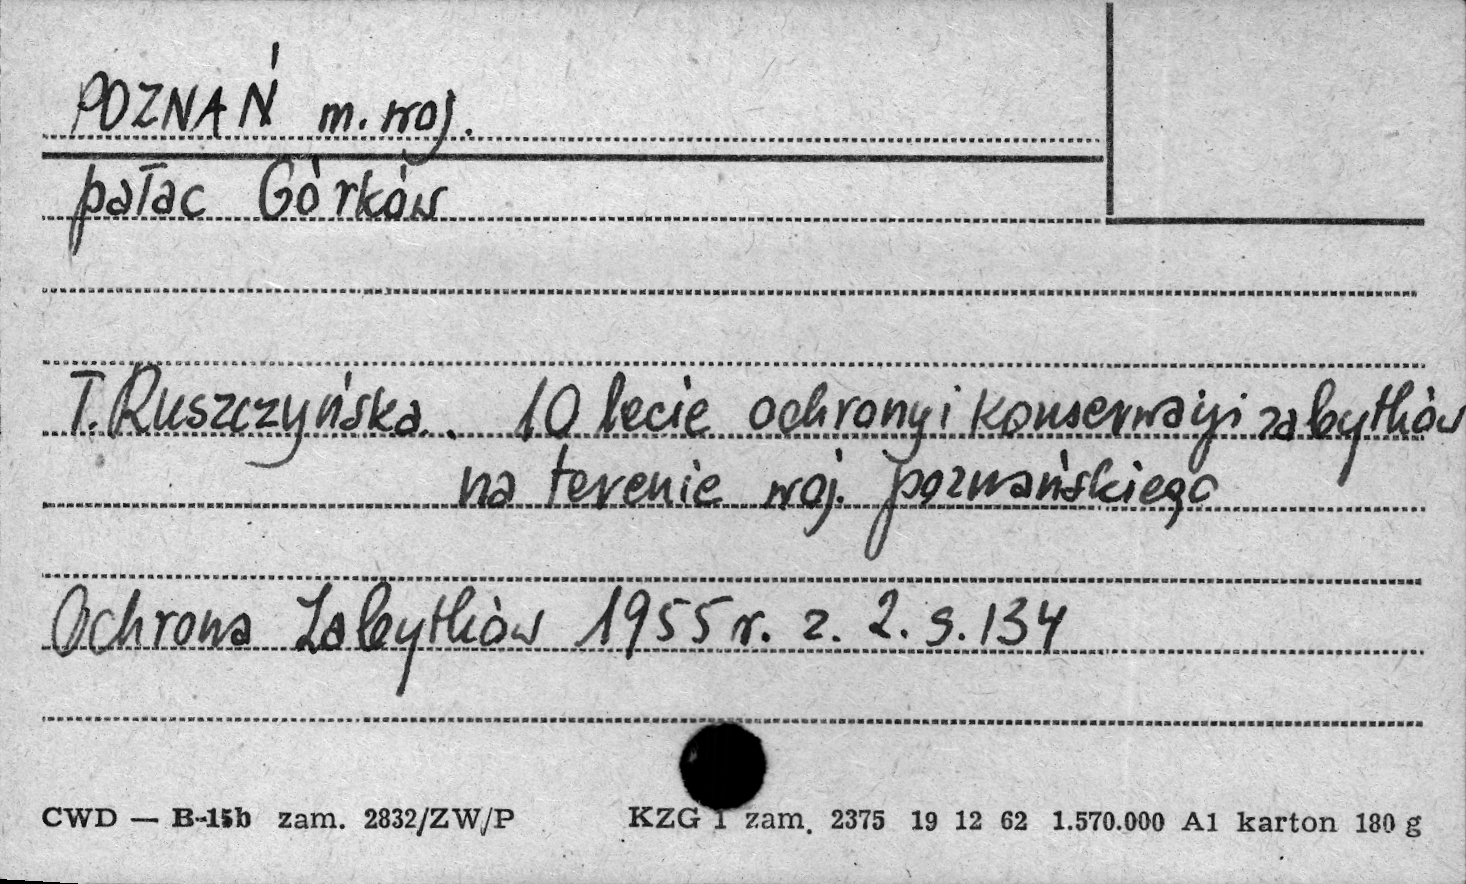 POZNAŃ m. woj.
pałac Górków
T. Ruszczyńska. 10 lecie ochrony i konserwacji zabytków
na terenie woj. poznańskiego
Ochrona Zabytków 1955 r. z. 2. s. 134
CWD — B-15b zam. 2832/ZW/P KZG 1 zam. 2375 19 12 62 1.570.000 A1 karton 180 g